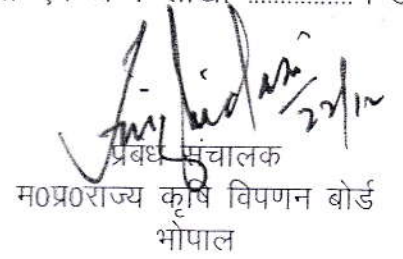 22/12
प्रबंध संचालक
म0प्र0राज्य कृषि विपणन बोर्ड
भोपाल